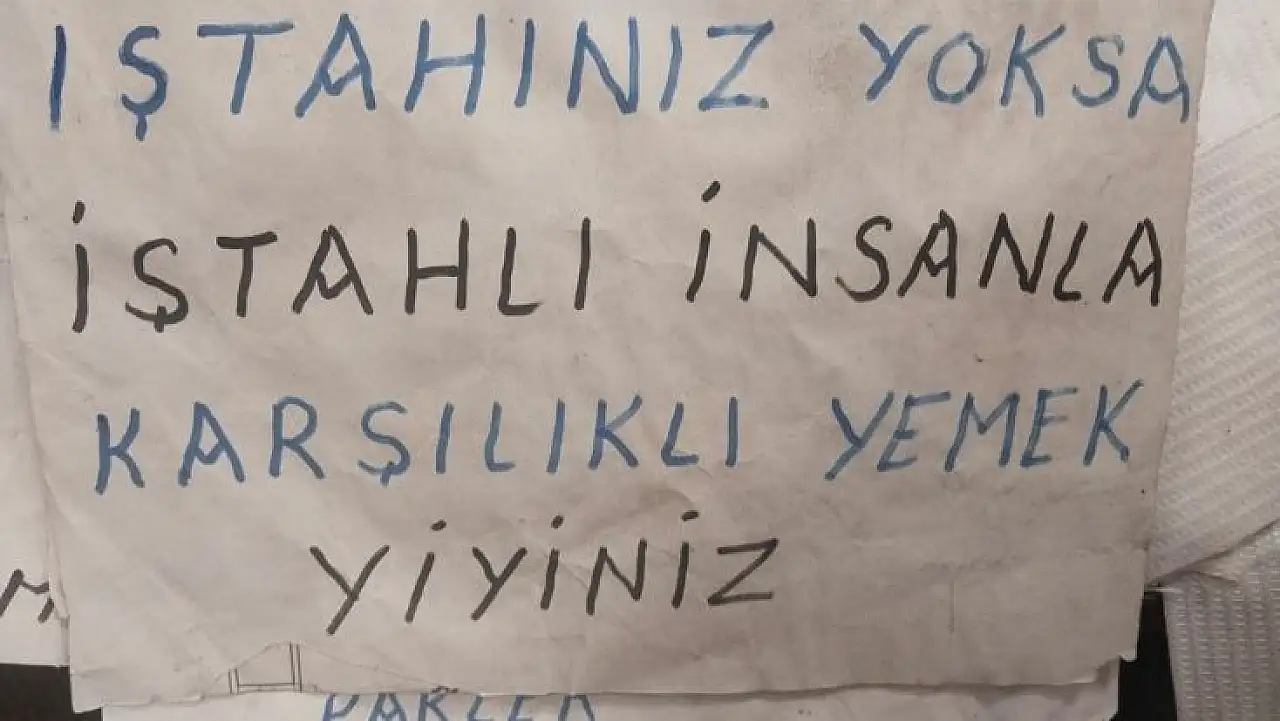 IŞTAHINIZ YOKSA
İŞTAHLI İNSANLA
KARŞILIKLI YEMEK
YİYİNİZ